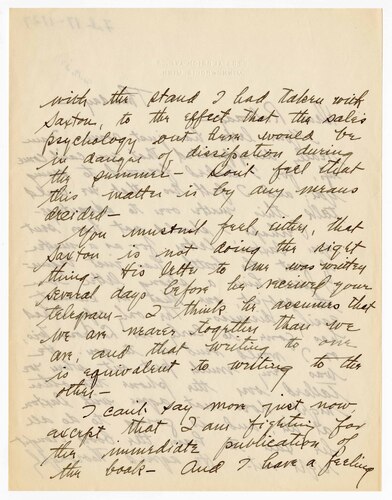 with the stand I had taken with
Saxton, to the effect that the sales
psychology out there would be
in danger of dissipation during
the summer - Don't feel that
this matter is by any means
decided -
You mustn't feel, either, that
Saxton is not doing the right
thing. His letter to me was written
several days before he received your
telegram - I think he assumes that
we are nearer together than we
are, and that writing to one
is equivalent to writing to the
other -
I can't say more just now
except that I am fighting for
the immediate publication of
the book - And I have a feeling